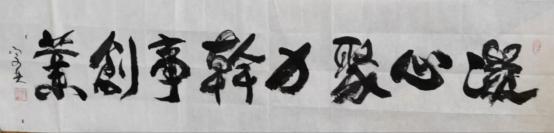 凝心聚力幹事創業